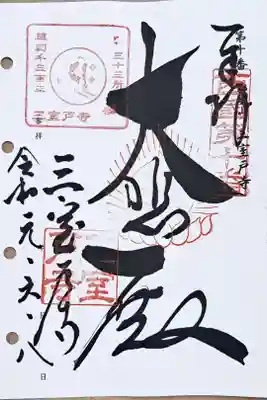 奉拝
大悲殿
三室戸寺
令和元・六・八
日
第十番
三室戸寺
三十三所
三室戸寺